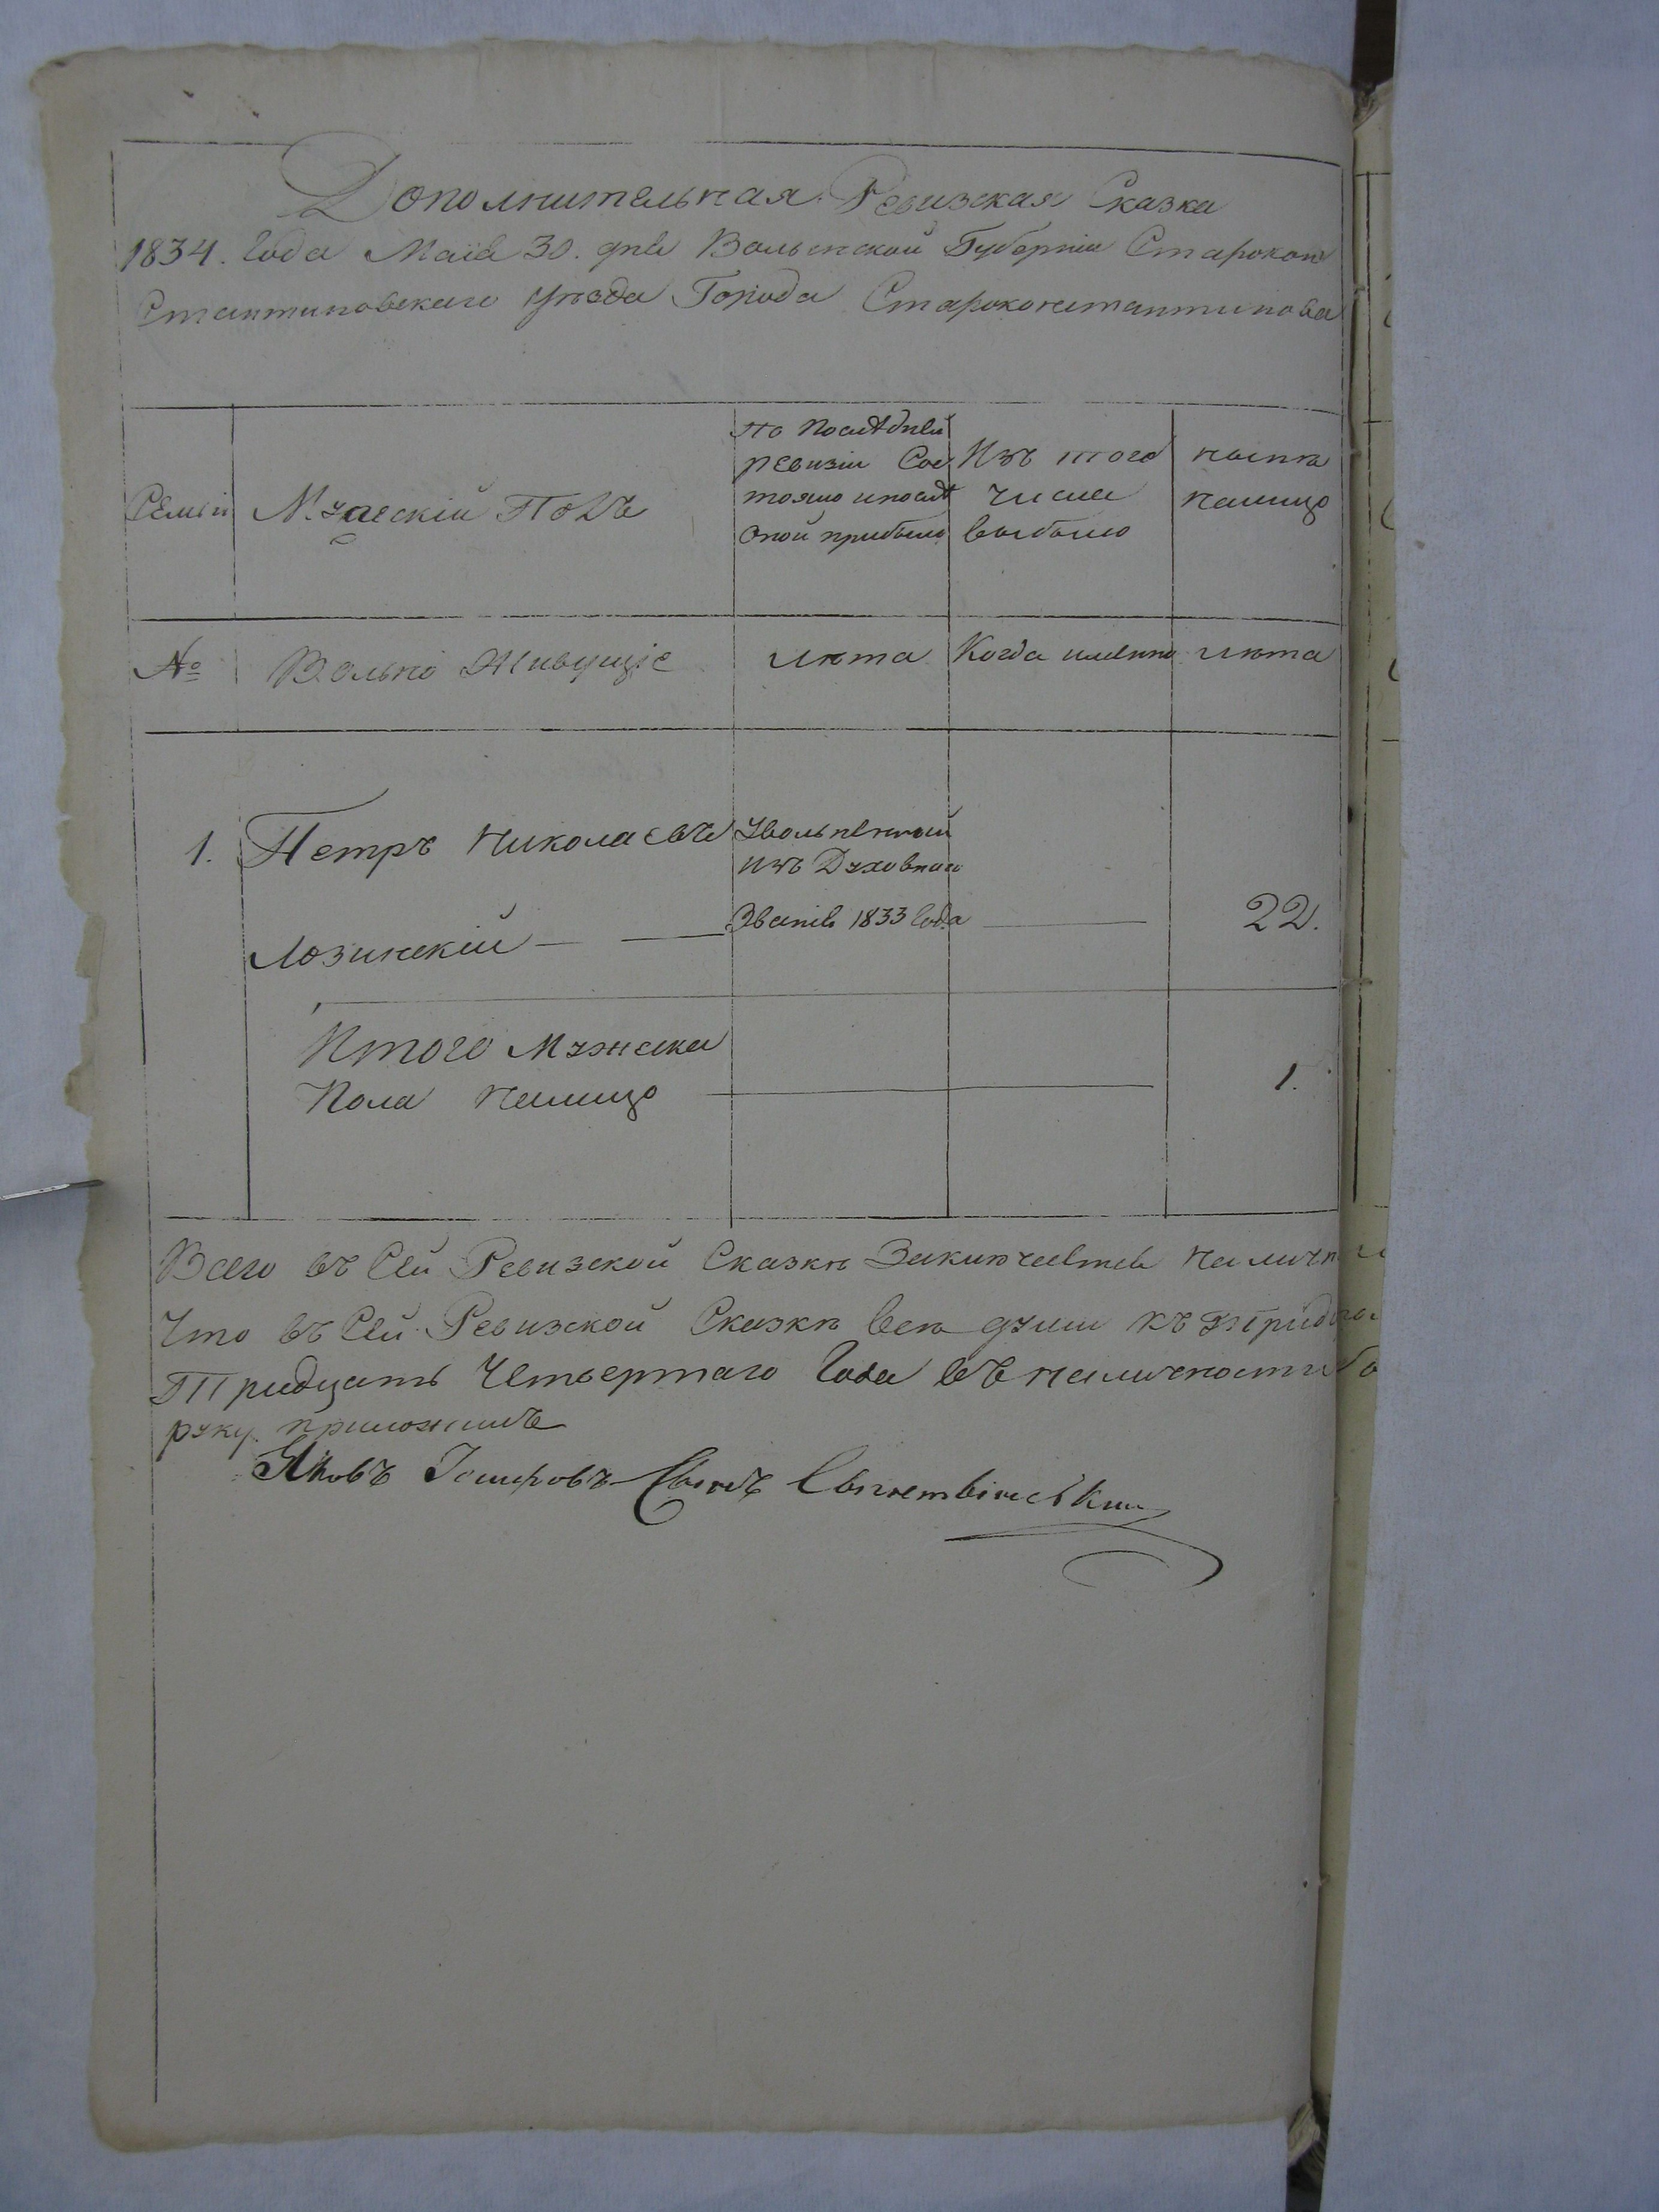 Дополнительная Ревизская Сказка
1834. Года Маiя 30. дня Волынской Губернiи Старокон
Стантиновскаго уѣзда Города Староконстантинова
Семьи
Мужескiй Полъ
По последней
ревизiи Сос
тояло и после
оной прибыло
Изъ того
числа
выбыло
нынѣ
налицо
№
Вольно Живущiе
лѣта
Когда именно
лѣта
1.
Петръ Николаевъ
Лозинскiй
Уволъненный
изъ Духовнаго
Званiя 1833 Года
22.
Итого Мужеска
Пола налицо
1.
Всего въ Сей Ревизской Сказкѣ Заключается
Что въ Сей Ревизской Сказкѣ всѣ души къ
Тридцать Четвертаго Года въ наличности
руку приложилъ
Яковъ Сынъ